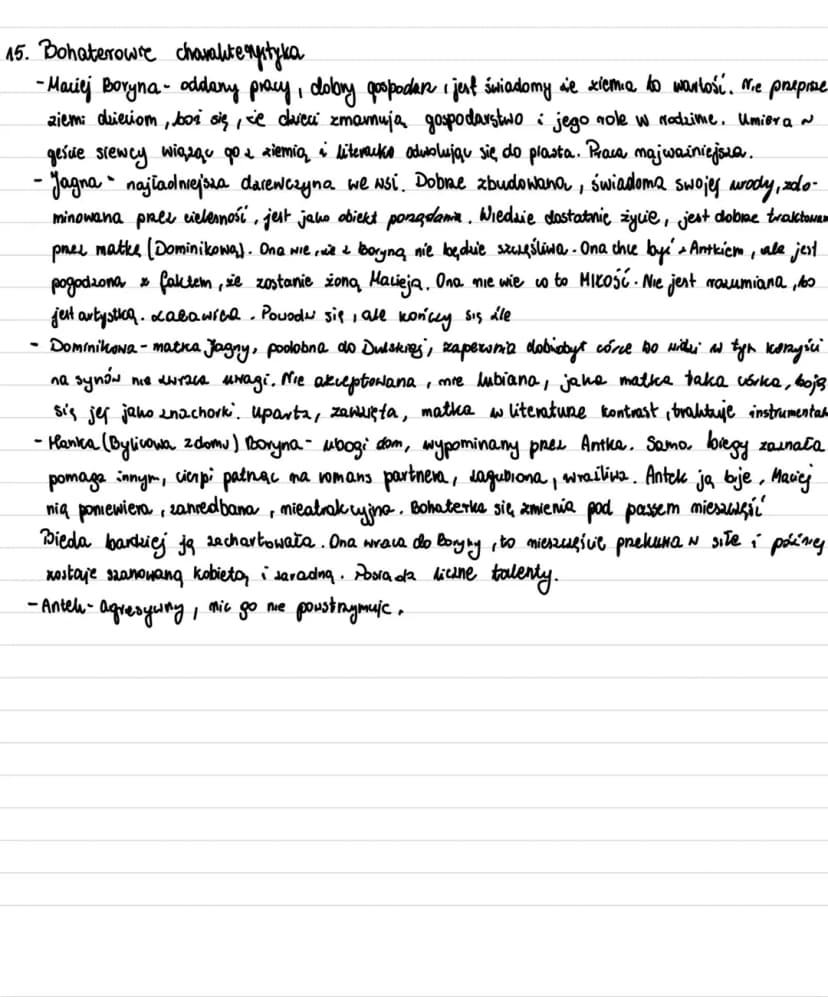 15. Bohaterowie charakterystyka
- Maciej Boryna - oddany pracy, dobry gospodarz i jest świadomy że ziemia to wartość. Nie przepisze
ziemi dzieciom, boi się, że dzieci zmarnują gospodarstwo i jego rolę w rodzinie. Umiera w
geście siewcy wiążąc go z ziemią i literacko odwołując się do piasta. Praca najważniejsza.
- Jagna - najładniejsza dziewczyna we wsi. Dobrze zbudowana, świadoma swojej urody, zdo-
minowana przez cielesność, jest jako obiekt porządania. Wiedzie dostatnie życie, jest dobrze traktowana
przez matkę (Dominikową). Ona wie, że z Boryną nie będzie szczęśliwa. Ona chce być z Antkiem, ale jest
pogodzona z faktem, że zostanie żoną Macieja. Ona nie wie co to MIŁOŚĆ. Nie jest rozumiana, bo
jest artystką. Łzawica. Powodzi się, ale kończy się źle
- Dominikowa - matka Jagny, podobna do Dulskiej, zapewnia dobrobyt córce bo widzi w tym korzyści
na synów nie zwraca uwagi. Nie akceptowana, nie lubiana, jaka matka taka córka, boją
się jej jako znachorki. uparta, zawzięta, matka w literaturze kontrast, traktuje instrumentaln
- Hanka (Bylicowa z domu) Boryna - ubogi dom, wypominany przez Antka. Sama biegy zaznała
pomaga innym, cierpi patrząc na romans partnera, zagubiona, wrażliwa. Antek ją bije, Maciej
nią poniewiera, zaniedbana, nieatrakcyjna. Bohaterka się zmienia pod pasem nieszczęść
Bieda bardziej ją zahartowała. Ona wraca do Boryny, to nieszczęście przekuwa w siłę i później
zostaje szanowaną kobietą i zaradną. Posiada liczne talenty.
- Antek - agresywny, nic go nie powstrzymuje.